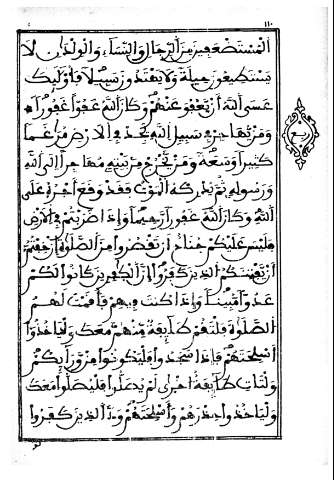 ١١٠
المستضعفين من الرجال والنساء والولدان لا
يستطيعون حيلة ولا يهتدون سبيلا فأولئك
عسى الله أن يعفو عنهم وكان الله عفوا غفورا
ومن يهاجر في سبيل الله يجد في الأرض مراغما
كثيرا وسعة ومن يخرج من بيته مهاجرا إلى الله
ورسوله ثم يدركه الموت فقد وقع أجره على
الله وكان الله غفورا رحيما وإذا ضربتم في الأرض
فليس عليكم جناح أن تقصروا من الصلوة إن خفتم
أن يفتنكم الذين كفروا إن الكفرين كانوا لكم
عدوا مبينا وإذا كنت فيهم فأقمت لهم
الصلوة فلتقم طائفة منهم معك وليأخذوا
أسلحتهم فإذا سجدوا فليكونوا من ورائكم
ولتأت طائفة أخرى لم يصلوا فليصلوا معك
وليأخذوا حذرهم وأسلحتهم ود الذين كفروا
لو
ربع